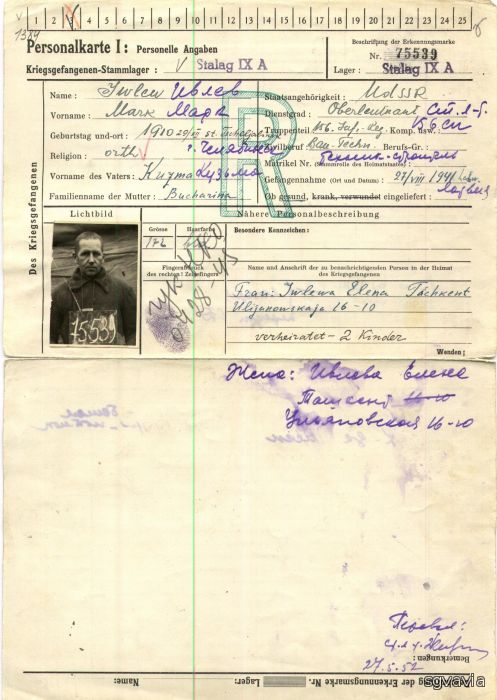 1 2 3 4 5 6 7 8 9 10 11 12 13 14 15 16 17 18 19 20 21 22 23 24 25
1389
Personalkarte I: Personelle Angaben
Beschriftung der Erkennungsmarke
Nr. 75539
Kriegsgefangenen-Stammlager: V Stalag IX A
Lager: Stalag IX A
Des Kriegsgefangenen
Name: Iwlew Ивлев
Staatsangehörigkeit: UdSSR
Vorname: Mark Марк
Dienstgrad: Oberleutnant Ст. л-т.
Geburtstag und -ort: 1910
Truppenteil: 156. Komp. usw.:
г. Челябинск
Zivilberuf: Bau-Techn. Berufs-Gr.:
Religion: orth V
Matrikel Nr. (Stammrolle des Heimatstaates):
Vorname des Vaters: Kuzma Кузьма
Gefangennahme (Ort und Datum): 27/VIII 1941
Familienname der Mutter: Bucharina
Ob gesund, krank, verwundet eingeliefert:
R
Lichtbild
Nähere Personalbeschreibung
Grösse
Haarfarbe
Besondere Kennzeichen:
176
75539
Fingerabdruck des rechten! Zeigefingers
Name und Anschrift der zu benachrichtigenden Person in der Heimat des Kriegsgefangenen
Frau: Iwlewa Elena Taschkent
Uljanowskaja 16-10
verheiratet - 2 Kinder
Wenden!
Жена: Ивлева Елена
Ташкент 16-10
Ульяновская 16-10
Перевел:
27.5.52
Bemerkungen:
Name:
Lager:
der Erkennungsmarke Nr.
sgvavia